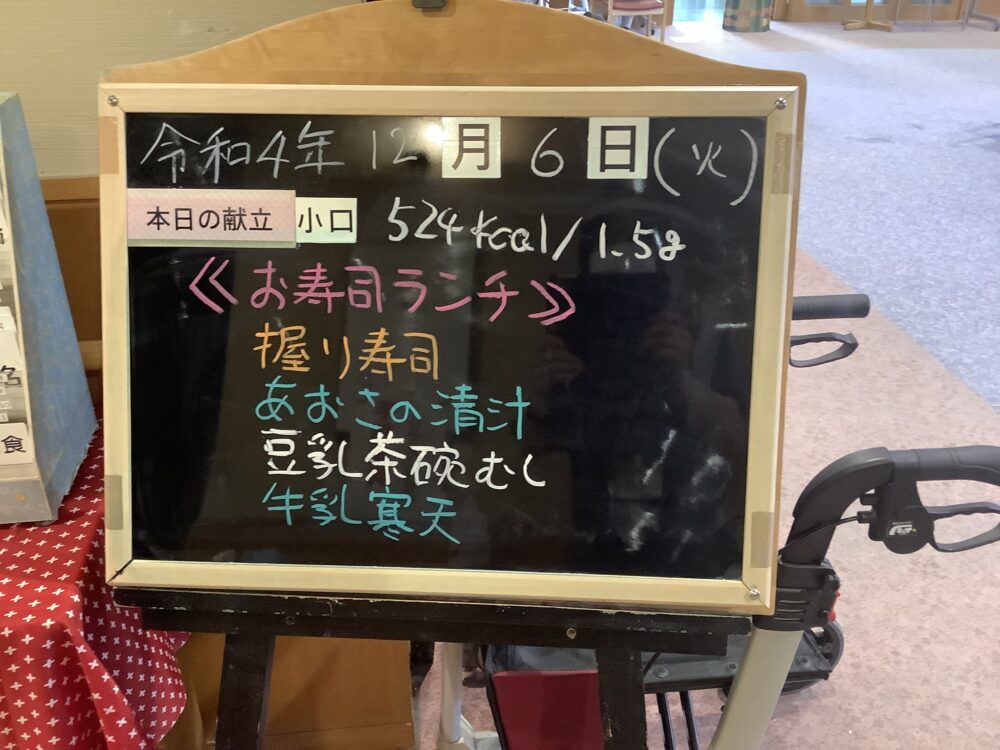 令和4年 12月 6日(火)
本日の献立 小口 524kcal/1.5g
≪お寿司ランチ≫
握り寿司
あおさの清汁
豆乳茶碗むし
牛乳寒天
食